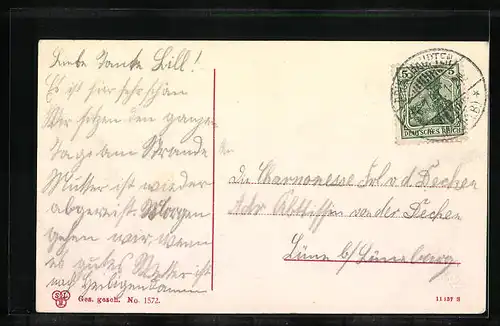 Liebe Tante Lill!
Es ist hier sehr schön
Wir sitzen den ganzen
Tag am Strande
Mutter ist wieder
abgereist. Morgen
gehen wir, wenn
es gutes Wetter ist
nach Heiligendamm
An
Die Chanoinesse Frl v. d Decken
Adr Äbtissin von der Decken
Lüne b/Lüneburg
5 5
DEUTSCHES REICH
Ges. gesch. No. 1572.
11137 II